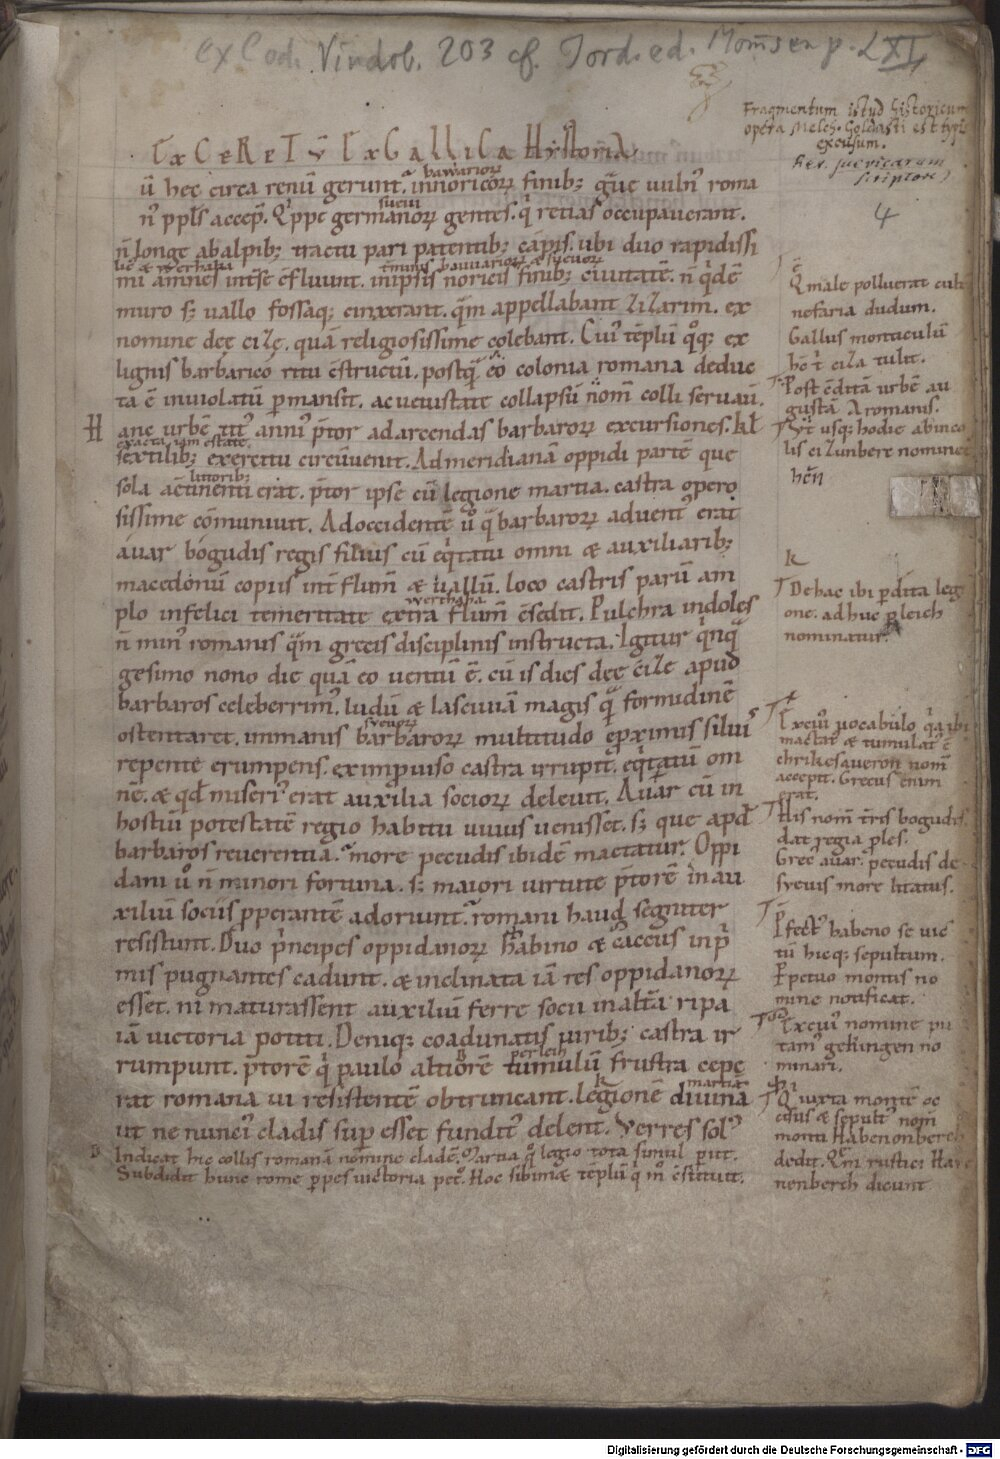 ex Cod. Vindob. 203 cf. Jord. ed. Momsen p. LXI
Fragmentum istud historicum
opera Melch. Goldasti est typis
excusum.
Rer. suevicarum
scriptores
4
ExCeRpTv̄ ExGalliCa Hystoria
bawarior̄
ū hec circa renū gerunt. innoricorꝝ finibꝫ
roma
suevi
nꝰ ppl̄s accep̄. Qͥppe germanorꝝ gentes. qͥ retias occupauerant.
n̄ longe abalpibꝫ tractu pari patentibꝫ cāpis. ubi duo rapidissi
mi amnes inter se c̄fluunt. inipsis noricis finibꝫ ciuitatē. n̄ qͥdē
muro sꝫ uallo fossaqꝫ cinxerant. quā appellabant zizarim. ex
nomine deę cizę. quā religiosissime colebant. Cuiꝰ tēplū qͦqꝫ ex
lignis barbarico ritu c̄structū. postquā eo colonia romana deduc
ta ē inuiolatū ꝑmansit. ac uetustate collapsū nom̄ colli seruauit.
Hanc urbē titꝰ anniꝰ p̄tor adarcendas barbarorꝝ excursiones. kl̄
exacta iam estate
sextilibꝫ exercitu circūuenit. Admeridianā oppidi partē que
sola
erat. p̄tor ipse cū legione martia. castra opero
sissime cōmuniuit. Adoccidentē ū qͣ barbarorꝝ aduentꝰ erat
auar bogudis regis filius cū eqͥtatu omni & auxiliaribꝫ
macedonū copiis int̄ flum̄ & uallū. loco castris parū am
werthaha
plo infelici temeritate extra flum̄ c̄sedit. Pulchra indoles
n̄ minꝰ romanis qͣm grecis disciplinis instructa. Igitur qͥnqͣ
gesimo nono die quā eo uentū ē. cū is dies deę cizę apud
barbaros celeberrimꝰ. ludū & lasciuiā magis qͣ formidinē
svevorꝝ
ostentaret. inmanis barbarorꝝ multitudo eꝓximis siluis
repente erumpens. eximprouiso castra irrupit. eqͥtatū om
nē. & qd̄ miseriꝰ erat auxilia sociorꝝ deleuit. Auar cū in
hostiū potestatē regio habitu uiuus uenisset. sꝫ que apd̄
barbaros reuerentia. more pecudis ibidē mactatur. Oppi
dani ū n̄ minori fortuna. sꝫ maiori uirtute p̄torē in au
xiliū sociis ꝓperantē adoriunt. romani haud segniter
resistunt. Duo p̄ncipes oppidanorꝝ habino & caccus inp̄
mis pugnantes cadunt. & inclinata iā res oppidanorꝝ
esset. ni maturassent auxiliū ferre socii inaltā ripa
iā uictoria potiti. Deniqꝫ coadunatis uiribꝫ castra ir
rumpunt. p̄torē qͥ paulo altiorē tumulū frustra cepe
rat romana ui resistentē obtruncant. legionē diuinā
ut ne nunciꝰ cladis sup esset funditꝰ delent. Verres solꝰ
Indicat hic collis romanā nomine cladē. Martia qͦ legio tota simul ꝑiit.
Subdidit hunc rome
Hoc sibimet tēplū
Q male polluerat
nefaria dudum.
Gallus monticulū
hc̄ t cizA tulit.
Post c̄ditā urbē au
gustā A romanis.
usqꝫ hodie abinco
lis cizunberc nominet
k
De hac ibi ꝑdita legi
one. adhuc ꝑleich
nominatur.
Ex cuiꝰ uocabulo qͥa ibi
mactatꝰ & tumulatꝰ ē
chrikesaueron nom̄
accepit. Grecus enim
erat.
His nom̄ t̄ris bogudis
dat regia ꝓles.
Grec auar. pecudis de
svevis more litatus.
Pfectꝰ habeno se uic
tū hicqꝫ sepultum.
Ppetuo montis no
mine notificat.
Ex cuiꝰ nomine pu
tamꝰ gekingen no
minari.
Q iuxta montē oc
cisus & sepultꝰ nom̄
monti Habenonberch
dedit. Qm̄ rustici Hau
nenberch dicunt
Digitalisierung gefördert durch die Deutsche Forschungsgemeinschaft - DFG